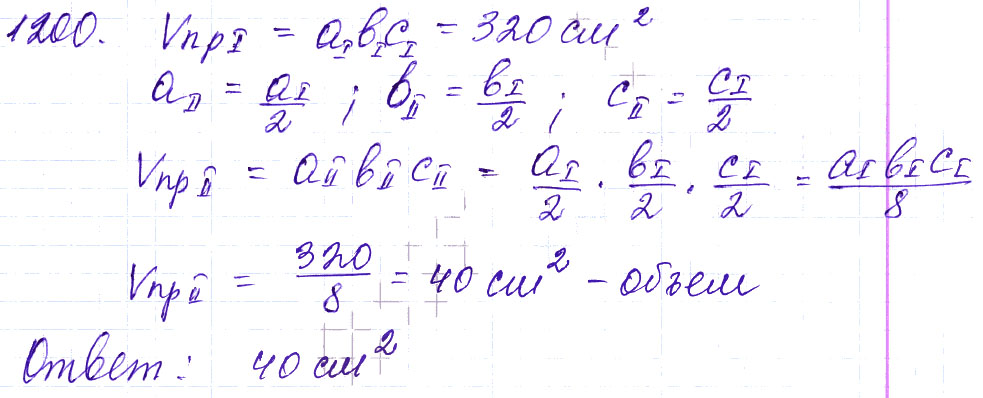 1200. VпрI = aIвIcI = 320 см²
aII = aI/2 ; вII = вI/2 ; cII = cI/2
VпрII = aII вII cII = aI/2 · вI/2 · cI/2 = aI вI cI/8
VпрII = 320/8 = 40 см² - объем
Ответ: 40 см²